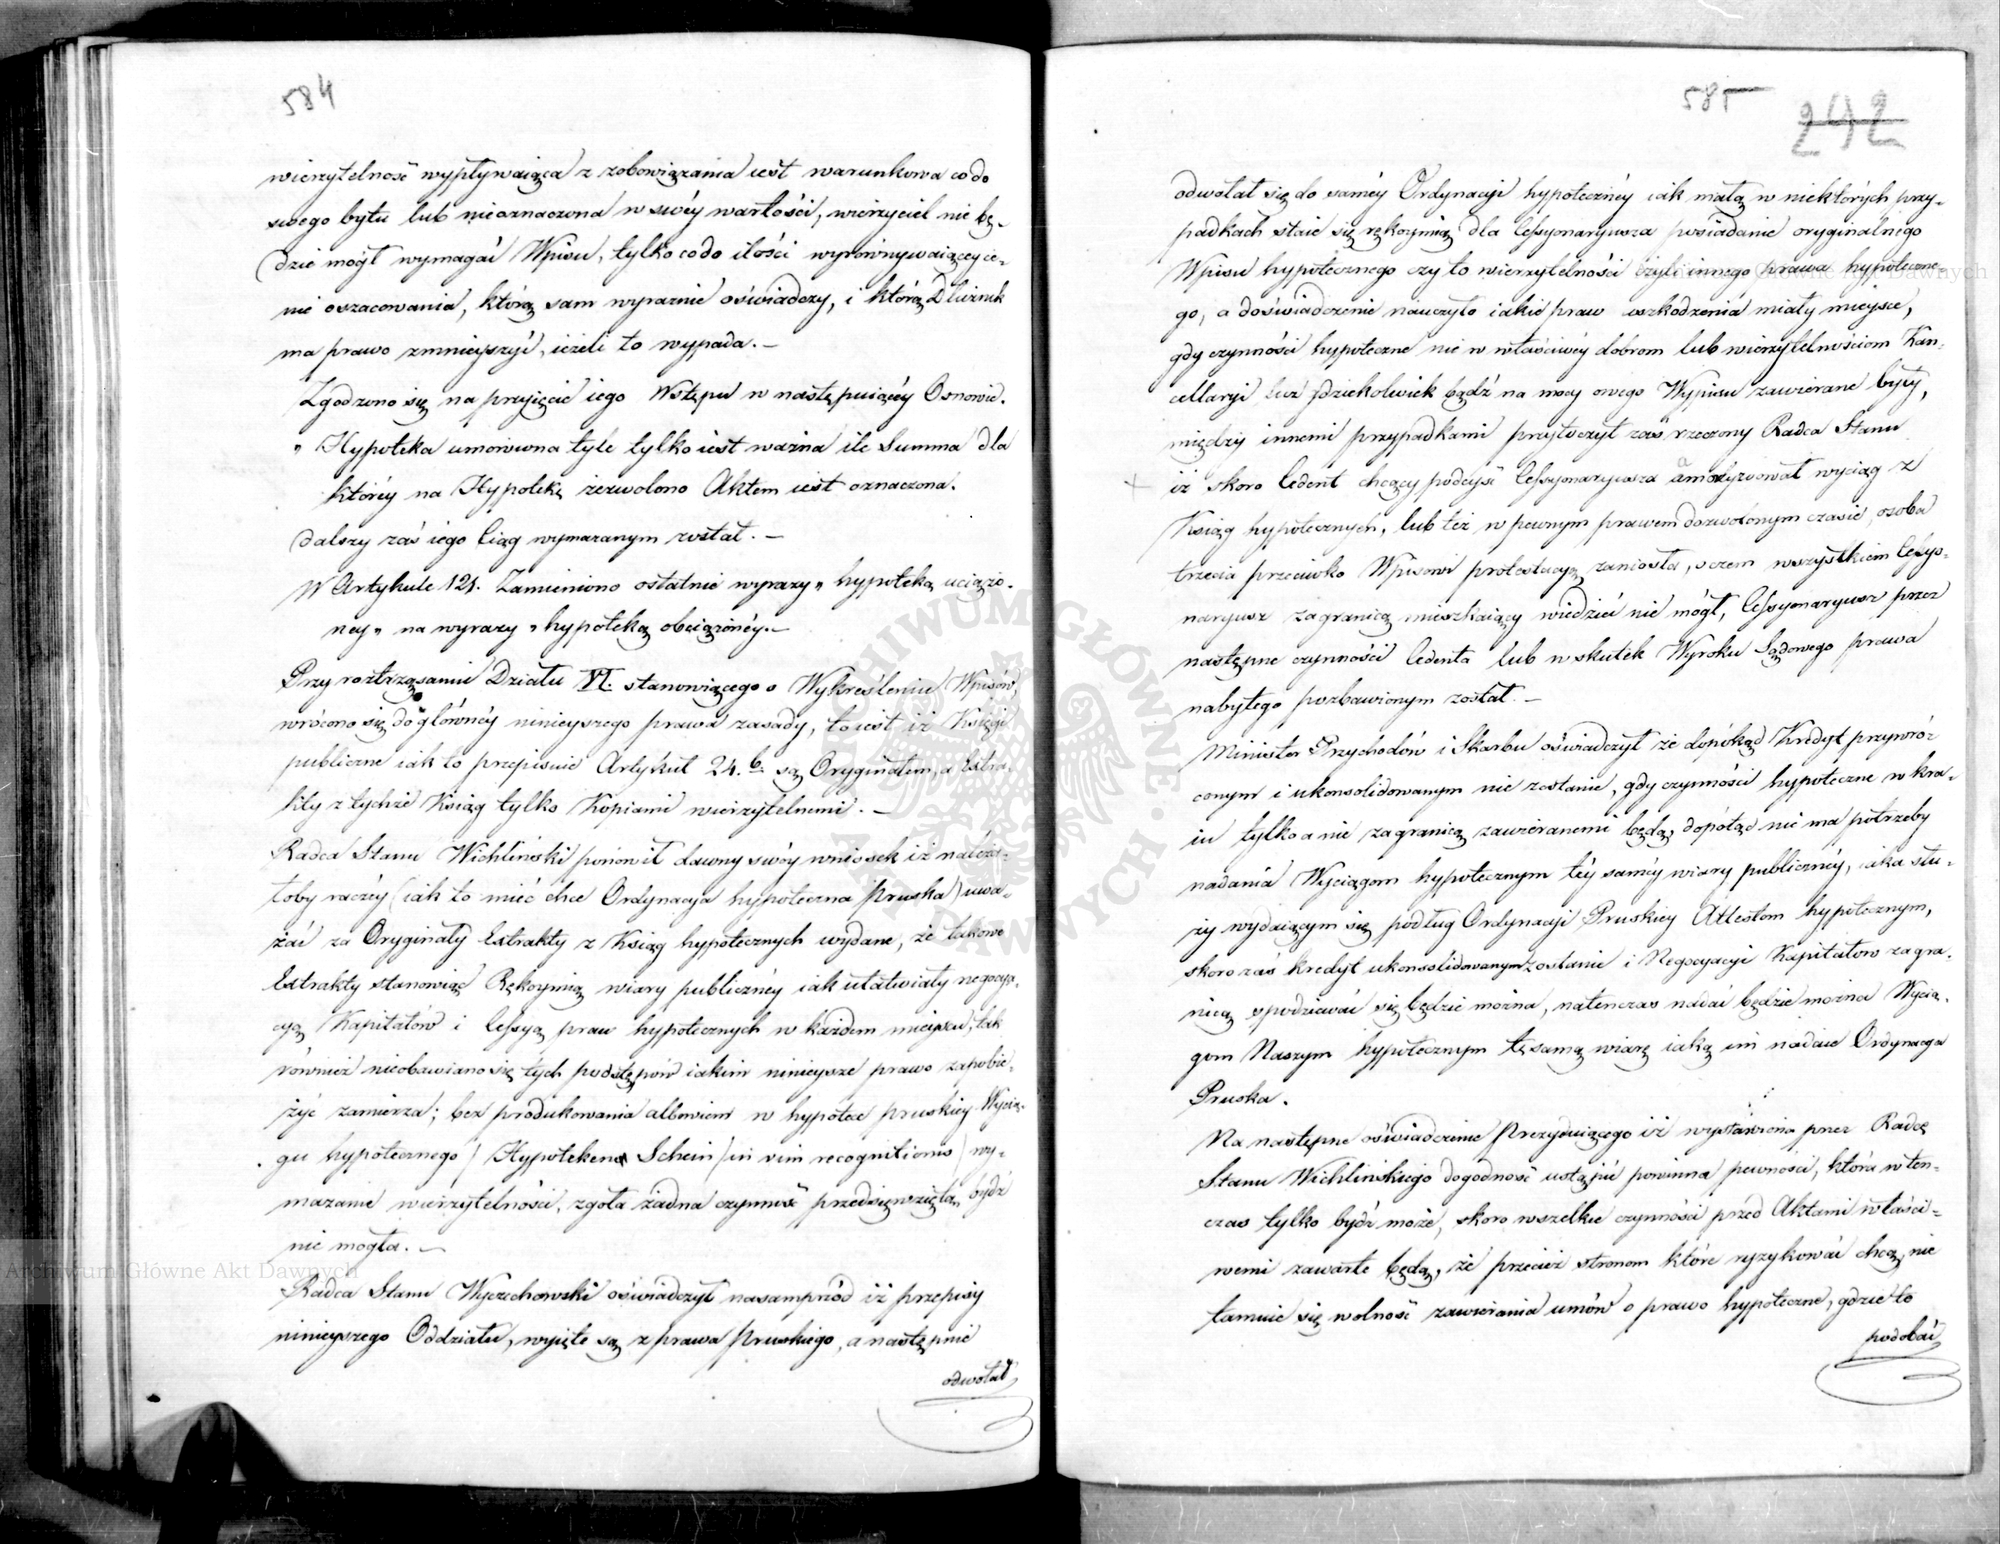 584
wierzytelność wypływaiąca z zobowiązania iest warunkowa co do
swego bytu lub nieoznaczona w swéy wartości, wierzyciel nie bę-
dzie mógł wymagać Wpisu, tylko co do ilości wyrównywaiącey ce-
nie oszacowania, którą sam wyraźnie oświadczy, i którą Dłużnik
ma prawo zmnieyszyć, ieżeli to wypada. —
Zgodzono się na przyięcie iego Wstępu w następuiącéy Osnowie.
„ Hypoteka umowna tyle tylko iest ważna ile Summa dla
któréy na Hypotekę zezwolono Aktem iest oznaczona.
dalszy zaś iego Ciąg wymazanym został. —
W Artykule 121. Zamieniono ostatnie wyrazy „ hypoteką uciążo-
ney „ na wyrazy „ hypoteką obciążonéy. —
Przy roztrząsaniu Działu VI. stanowiącego o Wykreśleniu Wpisów,
wrócono się do główney ninieyszego prawa zasady, to iest iż Księgi
publiczne iak to przepisuie Artykuł 24. b. są Oryginałem, a Extra-
kty z tychże Ksiąg tylko Kopiami wierzytelnemi. —
Radca Stanu Wichliński ponowił dawny swóy wniosek iż należa-
łoby raczéy (iak to mieć chce Ordynacya hypoteczna Pruska) uwa-
żać za Oryginały Extrakty z Ksiąg hypotecznych wydane, że takowe
Extrakty stanowiąc Rękoymią wiary publicznéy iak ułatwiały negocya-
cyą Kapitałów i Cessyą praw hypotecznych w każdem mieyscu, tak
również nieobawiano się tych podstępów iakim ninieysze prawo zapobie-
żyć zamierza; bez produkowania albowiem w hypotece pruskiey Wycią-
gu hypotecznego / Hypoteken Schein / in vim recognitionis / wy-
mazanie wierzytelności, zgoła żadna czynność przedsięwzięta bydź
nie mogła. —
Radca Stanu Wyczechowski oświadczył nasamprzód iż przepisy
ninieyszego Oddziału, wyięte są z prawa Pruskiego, a następnie
odwołał
585
242
odwołał się do saméy Ordynacyi hypotecznéy iak małą w niektórych przy-
padkach staie się rękoymią dla Cessyonaryusza posiadanie oryginalnego
Wpisu hypotecznego czy to wierzytelności czyli innego prawa hypoteczne-
go, a doświadczenie nauczyło iakie praw uszkodzenia miały mieysce,
gdy czynności hypoteczne nie w właściwéy dobrom lub wierzytelnościom Kan-
cellaryi lecz gdziekolwiek bądź na mocy owego Wypisu zawierane były,
między innemi przypadkami przytoczył zaś rzeczony Radca Stanu
iż skoro Cedent chcący podeyść Cessyonaryusza amortyzował wyciąg z
Ksiąg hypotecznych, lub też w pewnym prawem dozwolonym czasie, osoba
trzecia przeciwko Wpisowi protestacyą zaniosła, o czem wszystkiem Cessyo-
naryusz zagranicą mieszkaiący wiedzieć nie mógł, Cessyonaryusz przez
następne czynności Cedenta lub w skutek Wyroku Sądowego prawa
nabytego pozbawionym został. —
Minister Przychodów i Skarbu oświadczył że dopókąd Kredyt przywró-
conym i ukonsolidowanym nie zostanie, gdy czynności hypoteczne w kra-
iu tylko a nie zagranicą zawieranemi będą, dopótąd nie ma potrzeby
nadania Wyciągom hypotecznym téy saméy wiary publicznéy, iaka słu-
ży wydaiącym się podług Ordynacyi Pruskiey Attestom hypotecznym,
skoro zaś kredyt ukonsolidowanym zostanie i Negocyacyi Kapitałów zagra-
nicą spodziewać się będzie można, natenczas nadać będzie można Wycią-
gom Naszym hypotecznym tę samą wiarę iaką im nadaie Ordynacya
Pruska.
Na następne oświadczenie Prezyduiącego iż wystawiona przez Radcę
Stanu Wichlińskiego dogodność ustąpić powinna pewności, która w ten-
czas tylko bydź może, skoro wszelkie czynności przed Aktami właści-
wemi zawarte będą, że przecież stronom które ryzykować chcą, nie
tamuie się wolność zawierania umów o prawo hypoteczne, gdzie to
podobać